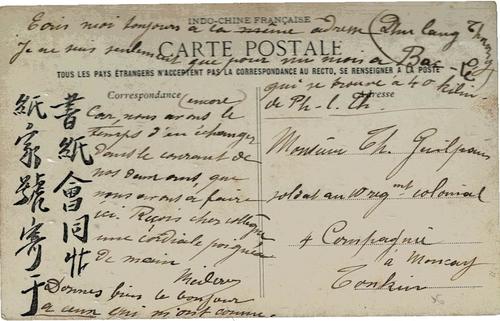 Ecris moi toujours à la meme adresse (Phu lang Thuong)
INDO-CHINE FRANÇAISE
Je ne suis seulement que pour un mois a Bac-Lé
CARTE POSTALE
TOUS LES PAYS ÉTRANGERS N'ACCEPTENT PAS LA CORRESPONDANCE AU RECTO, SE RENSEIGNER A LA POSTE
qui se trouve à 40 kilm
de Ph-l. Th
Correspondance
Adresse
(encore)
Car, nous avons le
temps d'en échanger
dans le courant de
nos deux ans, que
nous avons a faire
ici. Reçois cher collègue
une cordiale poignée
de main
Donnes bien le bonjour
a ceux qui m'ont connu.
Monsieur Th.
soldat au 10 regmt colonial
4 Compagnie
à Moncay
Tonkin
書紙會同帖
紙家號寄于